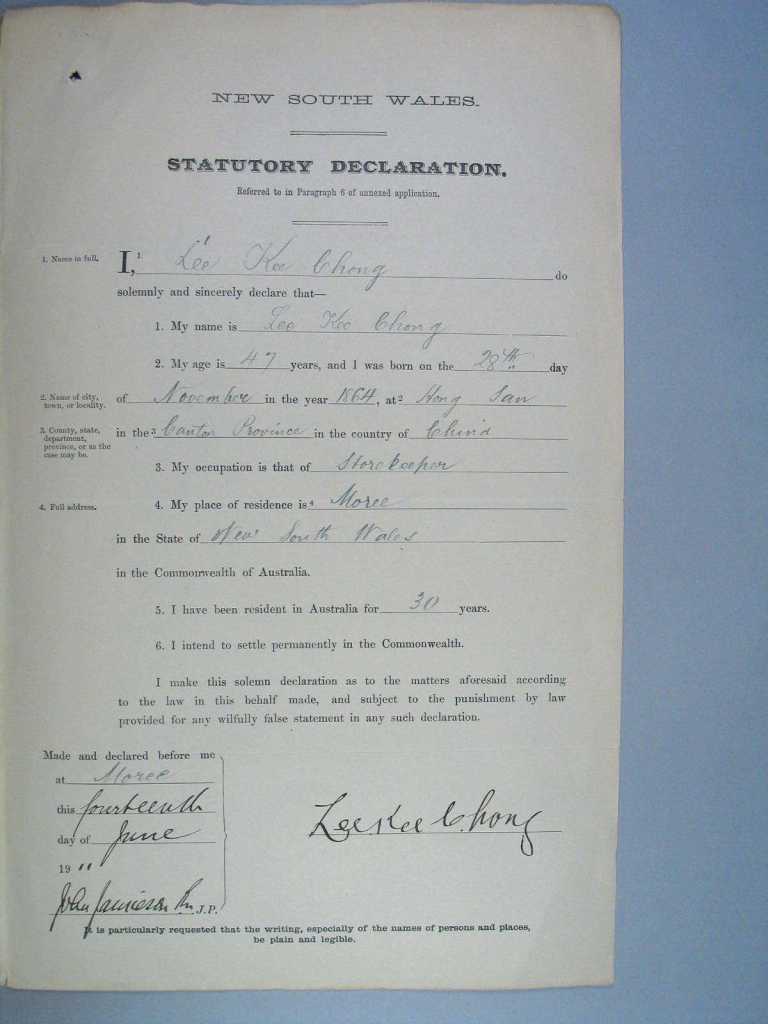 NEW SOUTH WALES.
STATUTORY DECLARATION.
Referred to in Paragraph 6 of annexed application.
1. Name in full.
I,¹ Lee Kee Chong do
solemnly and sincerely declare that—
1. My name is Lee Kee Chong
2. My age is 47 years, and I was born on the 28th day
2. Name of city, town, or locality.
of November in the year 1864, at ² Hong San
3. County, state, department, province, or as the case may be.
in the ³ Canton Province in the country of China
3. My occupation is that of Storekeeper
4. Full address.
4. My place of residence is ⁴ Moree
in the State of New South Wales
in the Commonwealth of Australia.
5. I have been resident in Australia for 30 years.
6. I intend to settle permanently in the Commonwealth.
I make this solemn declaration as to the matters aforesaid according
to the law in this behalf made, and subject to the punishment by law
provided for any wilfully false statement in any such declaration.
Made and declared before me
at Moree
this fourteenth
day of June
19 11
John Jamieson J.P.
Lee Kee Chong
It is particularly requested that the writing, especially of the names of persons and places,
be plain and legible.